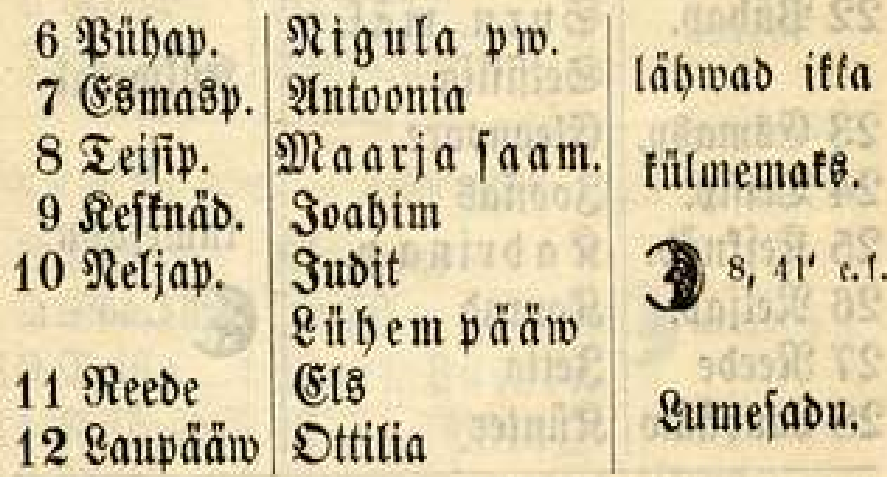 6 Pühap. Nigula pw.
lähwad ikka
7 Esmasp. Antoonia
8 Teisip. Maarja saam.
külmemaks.
9 Kesknäd. Joahim
10 Neljap. Judit
8, 41' e. l.
Lühem pääw
11 Reede Els
Lumesadu.
12 Laupääw Ottilia